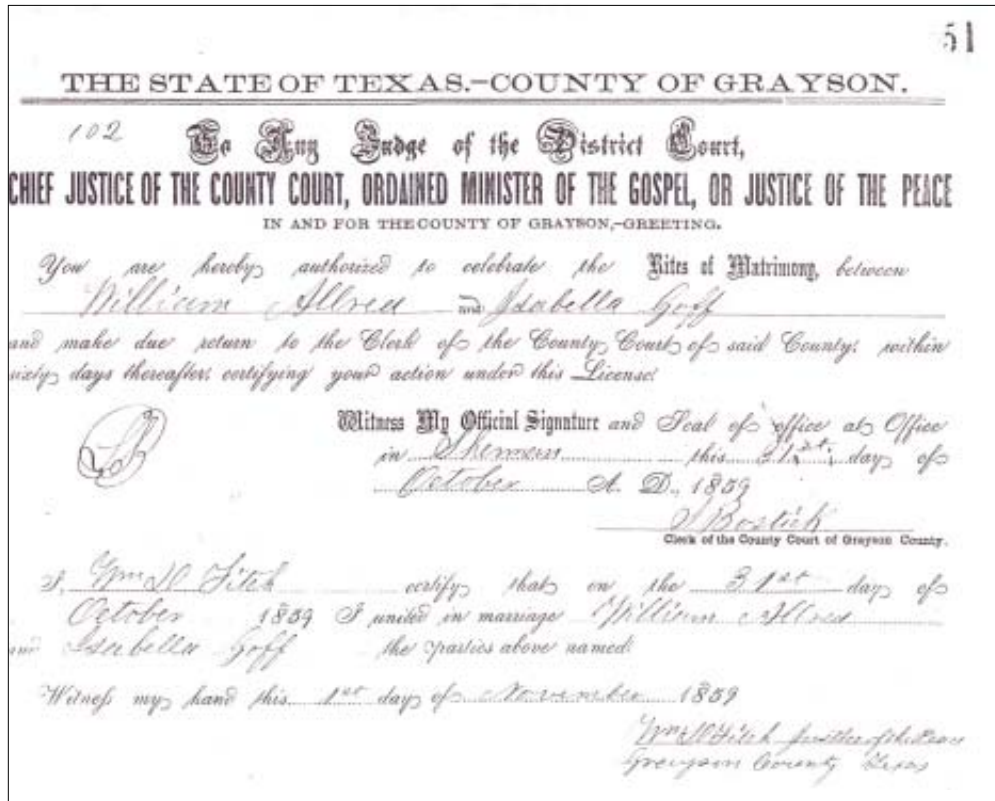 51
THE STATE OF TEXAS.-COUNTY OF GRAYSON.
102
To Any Judge of the District Court,
CHIEF JUSTICE OF THE COUNTY COURT, ORDAINED MINISTER OF THE GOSPEL, OR JUSTICE OF THE PEACE
IN AND FOR THE COUNTY OF GRAYSON,-GREETING.
You are hereby authorized to celebrate the Rites of Matrimony, between
William Allred and Isabella Goff
and make due return to the Clerk of the County Court of said County, within
sixty days thereafter, certifying your action under this License.
Witness My Official Signature and Seal of office at Office
in Sherman this 31st day of
October A. D., 1859
S Bostick
Clerk of the County Court of Grayson County.
I, Wm H Fitch certify that on the 31st day of
October 1859 I united in marriage William Allred
and Isabella Goff the parties above named.
Witness my hand this 1st day of November 1859
Wm H Fitch Justice of the Peace
Grayson County Texas